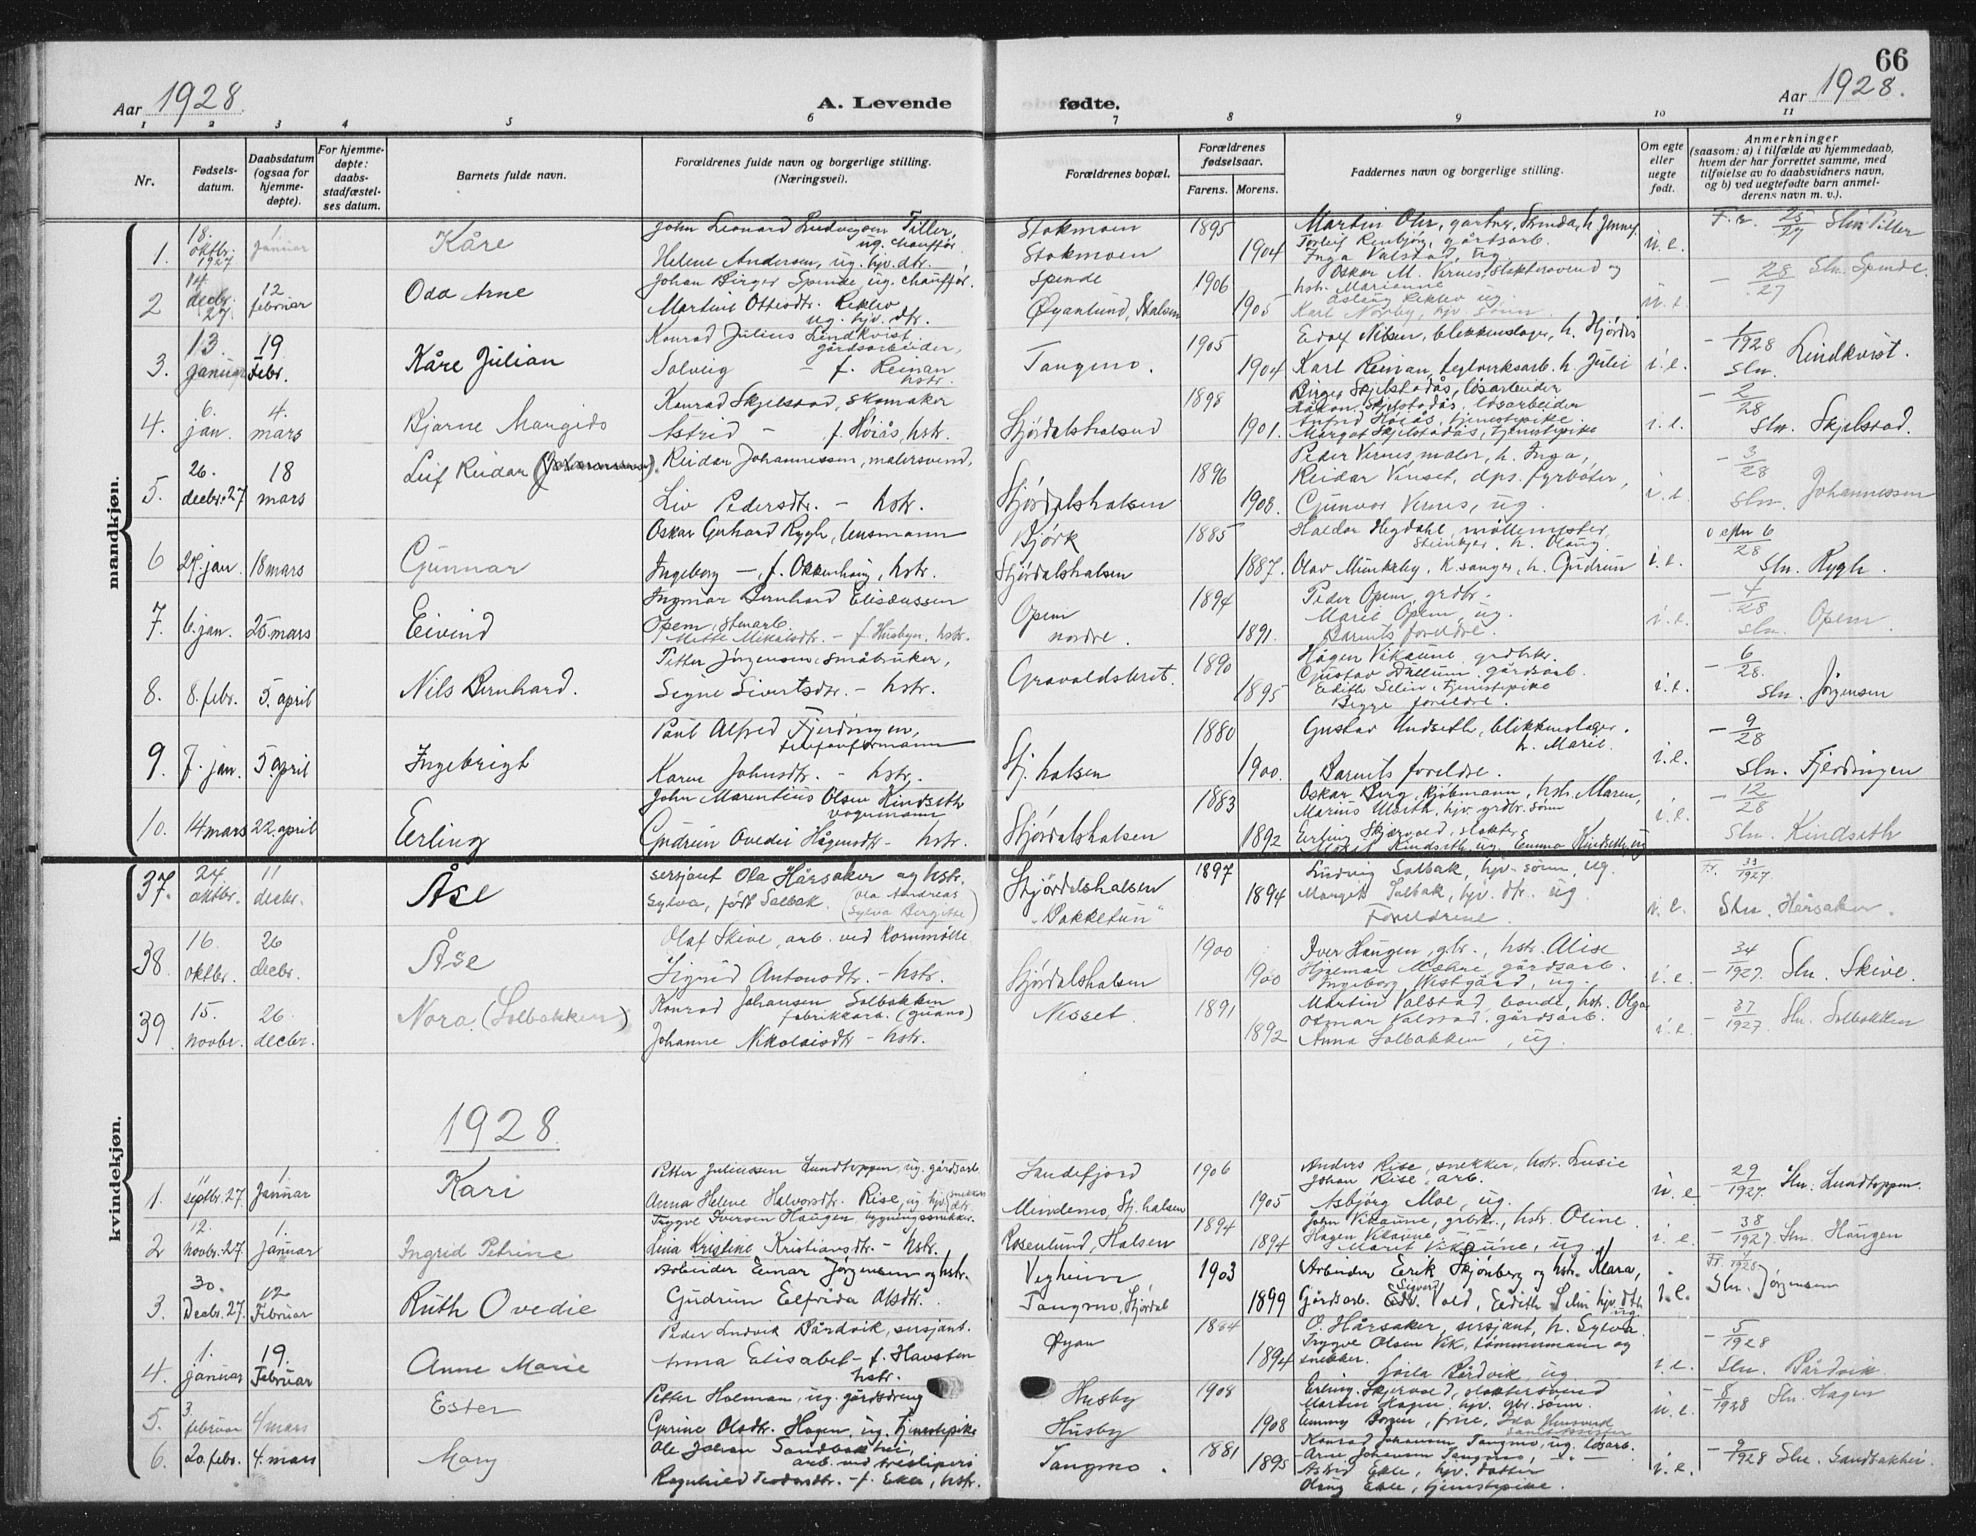 66
Aar 1928.
A. Levende
fødte.
Aar 1928.
1 2 3 4 5 6 7 8 9 10 11
Nr.
Fødsels-
datum.
Daabsdatum
(ogsaa for
hjemme-
døpte).
For hjemme-
døpte:
daabs-
stadfæstel-
ses datum.
Barnets fulde navn.
Forældrenes fulde navn og borgerlige stilling.
(Næringsvei).
Forældrenes bopæl.
Forældrenes
fødselsaar.
Farens. Morens.
Faddernes navn og borgerlige stilling.
Om egte
eller
uegte
født.
Anmerkninger
(saasom: a) i tilfælde av hjemmedaab,
hvem der har forrettet samme, med
tilføielse av to daabsvidners navn,
og b) ved uegtefødte barn anmel-
derens navn m. v.).
mandkjøn.
1. 18. oktbr. 1927 1. januar Kåre
John Leonard Ludvigsen Tiller, ug. chauffør
Helene Andersen, ug. hjv. dtr.
Stokmoen
Stokmoen
1895 1904
Inga Valstad, ug.
u. e. 25/27 Slm. Tiller
2 14 decbr. 27. 12 februar Odd Arne
Johan Birger Spende, ug. chauffør.
Martine Ottesdtr. Reklev
ug. hjv. dtr.
Spende
Øyanlund, Skatsen
1906 1905
Oskar M. Vernes, slaktersvend og
hstr. Marianne
Aslaug Reklev ug.
Karl Norby, hjv. sønn
u. e. – 28/27 Slm. Spende.
3. 13 januar 19 Febr. Kåre Julian
Konrad Julius Lindkvist
gårdsarbeider,
Solveig – f. Reinan
hstr.
Tangmo.
1905 1904
Edolf Nilsen, blekkenslager, h. Hjørdis
Karl Reinan, teglverksarb. h. Julie
i. e. – 1/1928 Slm. Lindkvist.
4. 6. jan. 4. mars Bjarne Margido
Konrad Skjelstad, skomaker
Astrid – f. Hoiås, hstr.
Stjørdalshalsen
1898 1901.
Birger Skjelstadås, løsarbeider
Håkon Skjelstadås, løsarbeider
Astrid Hoiås, tjenestepike
Margot Skjelstadås, tjenestepike
i. e. – 2/28 Slm. Skjelstad.
5. 26. decbr. 27 18 mars Leif Reidar (Johannessen).
Reidar Johannessen, malersvend,
Liv Pedersdtr. – hstr.
Stjørdalshalsen
1896 1903.
Peder Vernes maler, h. Inga,
Reidar Vinset, dps. fyrbøter,
Gunvor Vernes, ug.
i. e. – 3/28 Slm. Johannessen
6 27. jan. 18 mars Gunnar
Oskar Gerhard Rygh, lensmann
Ingeborg –, f. Okkenhaug, hstr.
Bjørk
Stjørdalshalsen
1885 1887.
Haldor Hegdahl, møllemester,
Steinkjer, h. Olaug.
Olav Munkeby, k.sanger, h. Gudrun
i. e. 6/28 Slm. Rygh.
7. 6. jan. 25 mars Eivind
Ingmar Bernhard Eliseussen
Opem, stenarb.
Mette Mikalsdtr. – f. Husbyn, hstr.
Opem
nordre.
1894 1891.
Peder Opem, grdbr.
Marie Opem, ug.
Barnets foreldre.
i. e. – 4/28 Slm. Opem
8. 8. febr. 5. april Nils Bernhard.
Petter Jørgensen, småbruker,
Signe Sivertsdtr. – hstr.
Gravaldsteret.
1890 1895
Hågen Vikaune, grdbrk.
Gustav Dullum, gårdsarb.
Edith Selin, tjenestepike
Begge foreldre.
i. e. – 6/28. Slm. Jørgensen
9. 7. jan. 5. april Ingebrigt
Paul Alfred Fjerdingen,
telefonformann
Karen Johnsdtr. – hstr.
Stj. halsen
1880 1900.
Gustav Undseth, blikkenslager.
h. Marie.
Barnets foreldre.
i. e. – 9/28 Slm. Fjerdingen
10. 14 mars 22. april Erling
John Marentius Olsen Kindseth
vognmann
Gudrun Ovedie Hågensdtr – hstr.
Stjørdalshalsen
1883 1892
Oskar Berg, kjøbmann, hstr. Maren,
Erling Skjervold, slakter
i. e. – 12/28 Slm. Kindseth
kvindekjøn.
37. 24. oktbr. 11 decbr. Åse
sersjant Ola Hårsaker og hstr.
Sylva, født Solbak. (Ola Andreas
Sylva Bergitte)
Stjørdalshalsen
"Bakketun"
1897 1894
Ludvig Solbak, hjv. sønn, ug.
Margit Solbak, hjv. dtr. ug
Foreldrene.
i. e. Fr. 33/1927 Slm. Hårsaker.
38. 16. oktbr. 26 decbr. Åse
Olaf Skive, arb. ved kornmølle
Sigrid Antonsdtr. – hstr.
Stjørdalshalsen
1900 1900
Iver Haugen, gbr., hstr. Alise
Hjalmar Mæhre gårdsarb.
Ingeborg Vestgård, ug.
i. e. – 34/1927. Slm. Skive.
39 15. novbr. 26. decbr. Nora (Solbakken)
Konrad Johansen Solbakken
fabrikkarb. (guano)
Johanne Nikolaisdtr – hstr.
Nesset.
1891 1892
Martin Valstad, bonde, hstr. Olga
Otmar Valstad, gårdsarb.
Anna Solbakken, ug.
i. e. – 37/1927. Slm. Solbakken
1928.
1. 11 septbr. 27 1 Januar Kari
Petter Juliussen Lundtoppen, ug. gårdsarb
Anna Helene Halvorsdtr. Rise, ug. hjv. snekker dtr.
Sandefjord
Mindemo, Stj. halsen
1906 1905
Anders Rise, snekker, hstr. Lusie
Johan Rise, arb.
Asbjørg Moe, ug.
u. e – 29/1927. Slm. Lundtoppen.
2 12. novbr. 27. 1. Januar Ingrid Petrine
Trygve Iversen Haugen, bygningssnekker.
Lina Kristine Kristiansdtr. – hstr.
Rosenlund, Halsen
1894 1894
John Vikaune, grbrk., hstr. Oline
Hagen Vikaune
Marit Vikaune, ug.
i. e. – 38/1927. Slm. Haugen
3. 30. Decbr. 27. 12 Februar Ruth Ovedie
Arbeider Einar Jørgensen og hstr.
Gudrun Elfrida Olsdtr.
Vegheim
Tangmo, Stjørdal
1903 1899
Arbeider Erik Skjønberg og hstr. Klara,
Gårdsarb. Sigurd Vold, Eedith Selin hjv. dtr.
ug
i. e. Slm. Jørgensen
4. 1. januar 19. Februar Anne Marie
Peder Ludvik Bårdvik, sersjant.
Anna Elisabet – f. Havsten
hstr.
Øyan
1864 1894
O. Hårsaker, sersjant, h. Sylva.
Trygve Olsen Vik, tømmermann og
snekker.
Bårdvik, ug.
i. e. – 5/1928 Slm. Bårdvik
5. 3. februar 4 mars Ester
Petter Holman, ug. gårdsdreng
Gurine Olsdtr. Hagen, ug. tjenestepike
Husby
Husby
1908 1908
Erling Skjervold, slaktersvend
Martin Hagen, hjv. gbr. sønn.
u. e. – 8/1928 Slm. Hagen
6. 20. febr. 4. mars Mary
Ole Johan Sandbakken,
arb. ved tresliperi
Ragnhild Teodorsdtr. – f. Ekle, hstr.
Tangmo.
1881 1895
Konrad Johansen Tangmo, ug. løsarb.
Arne Johansen Tangmo, – " –
Astrid Ekle, hjv. datter
Olaug Ekle, tjenestepike.
i. e. – 9/1928 Slm. Sandbakken.